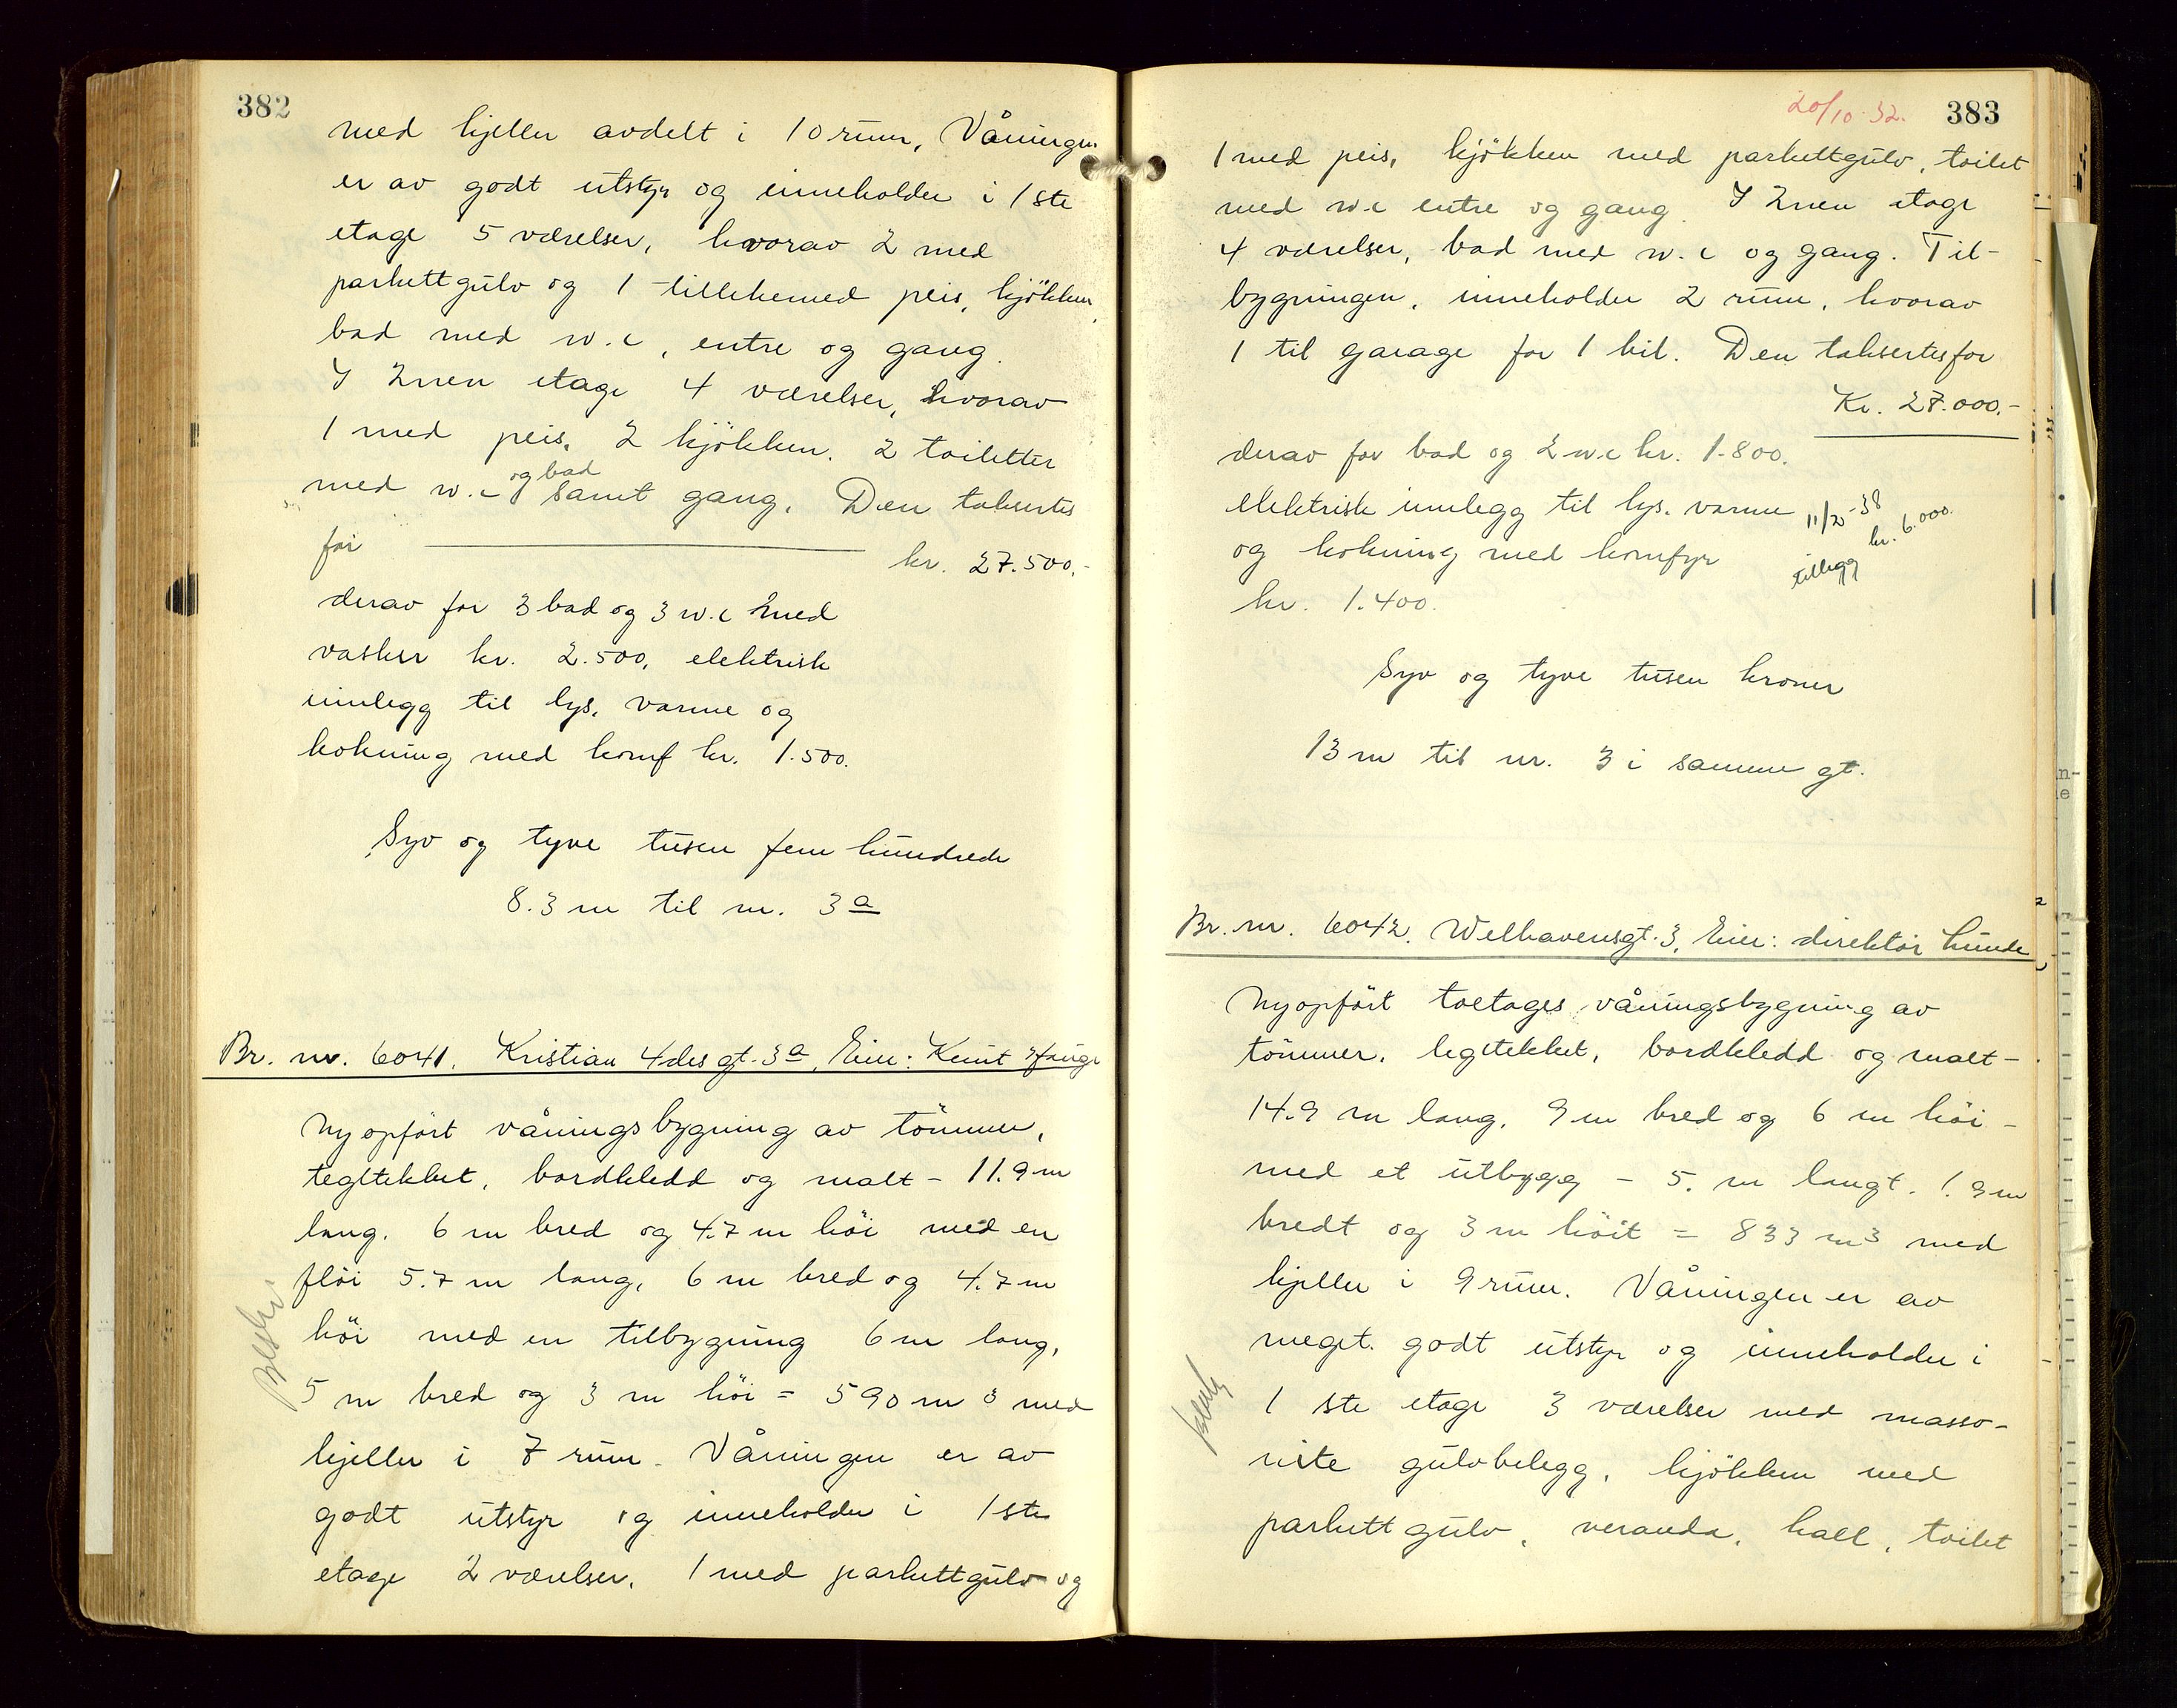 382
med kjeller avdelt i 10 rum, Våningen
er av godt utstyr og inneholder i 1ste
etage 5 værelser, hvorav 2 med
parkettgulv og 1 tillike med peis, kjökken,
bad med w.c, entre og gang.
I 2nen etage 4 værelser, hvorav
1 med peis, 2 kjökken, 2 toiletter
med w.c og bad samt gang. Den takseres
for kr. 27.500.-
derav for 3 bad og 3 w.c med
vasker kr. 2.500, elektrisk
innlegg til lys, varme og
kokning med komf kr. 1.500.
Syv og tyve tusen fem hundrede
8.3 m til nr. 3a
Br. nr. 6041. Kristian 4des gt. 3a, Eier: Knut Hauge
Nyopfört våningsbygning av tömmer,
tegltekket, bordkledd og malt - 11.9 m
lang, 6 m bred og 4.7 m höi med en
flöi 5.7 m lang, 6 m bred og 4.7 m
höi med en tilbygning 6 m lang,
5 m bred og 3 m höi = 590 m3 med
kjeller i 7 rum. Våningen er av
godt utstyr og inneholder i 1ste
etage 2 værelser, 1 med parkettgulv og
20/10 32. 383
1 med peis, kjökken med parkettgulv, toilet
med w.c entre og gang. I 2nen etage
4 værelser, bad med w.c og gang. Til-
bygningen, inneholder 2 rum, hvorav
1 til garage for 1 bil. Den takseres for
Kr. 27.000.-
derav for bad og 2 w.c kr. 1.800.
elektrisk innlegg til lys, varme
og kokning med komfyr
kr. 1.400.
38
kr. 6.000.
tillegg
Syv og tyve tusen kroner
13 m til nr. 3 i samme gt.
Br. nr. 6042. Welhavensgt. 3, Eier: direktör Lunde
Nyopfört toetages våningsbygning av
tömmer, tegltekket, bordkledd og malt -
14.9 m lang, 9 m bred og 6 m höi -
med et utbygg - 5. m langt, 1.9 m
bredt og 3 m höit = 833 m3 med
kjeller i 9 rum. Våningen er av
meget godt utstyr og inneholder i
1 ste etage 3 værelser med masso-
nite gulvbelegg, kjökken med
parkettgulv, veranda, hall, toilet